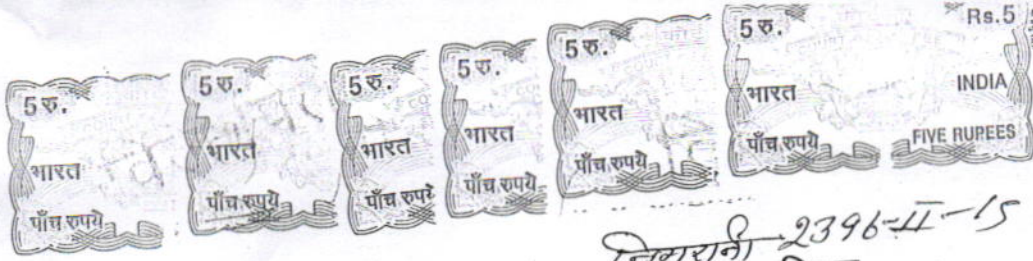 5 रु.
भारत
पाँच रुपये
5 रु.
भारत
पाँच रुपये
5 रु.
भारत
पाँच रुपये
5 रु.
भारत
पाँच रुपये
5 रु.
भारत
पाँच रुपये
5 रु. Rs.5
भारत INDIA
पाँच रुपये FIVE RUPEES
निगरानी 2396-II-15